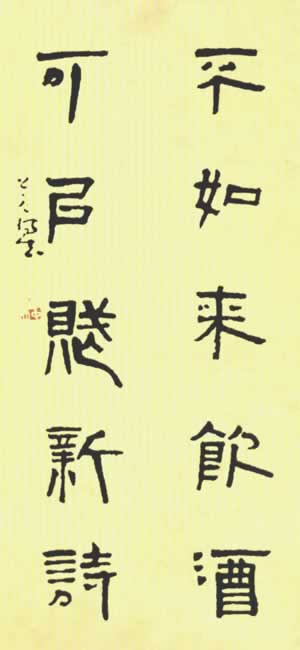 不如来飲酒
可㠯賦新詩